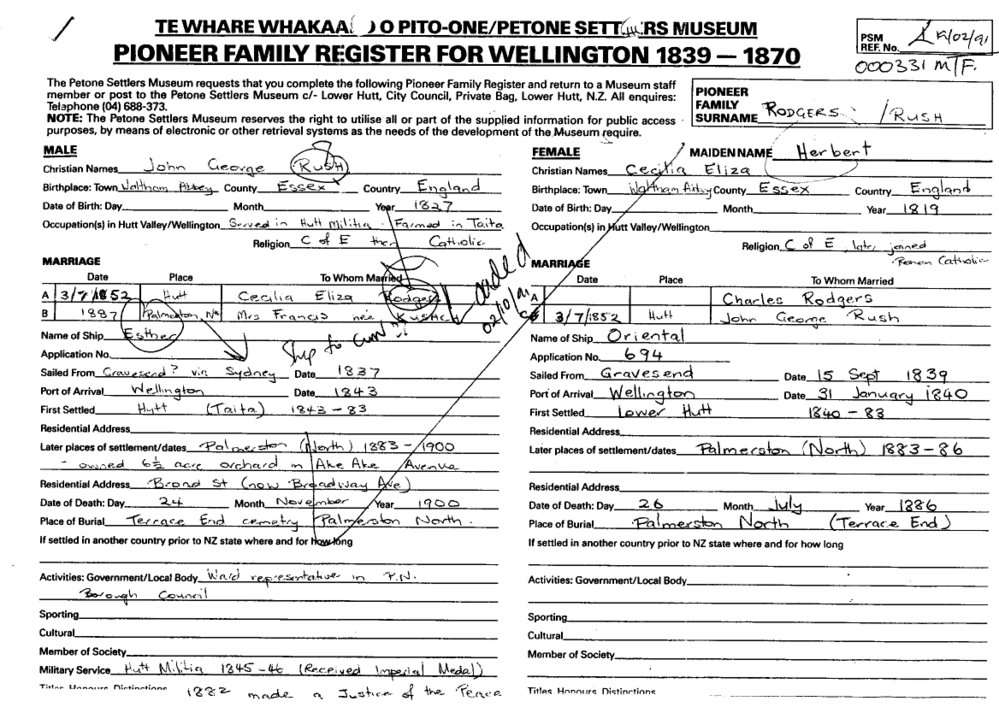 TE WHARE WHAKAA( ) O PITO-ONE/PETONE SETT RS MUSEUM
PIONEER FAMILY REGISTER FOR WELLINGTON 1839 — 1870
PSM
REF. No.
R/02/91
000331 M.F.
The Petone Settlers Museum requests that you complete the following Pioneer Family Register and return to a Museum staff
member or post to the Petone Settlers Museum c/- Lower Hutt, City Council, Private Bag, Lower Hutt, N.Z. All enquires:
Telephone (04) 688-373.
NOTE: The Petone Settlers Museum reserves the right to utilise all or part of the supplied information for public access
purposes, by means of electronic or other retrieval systems as the needs of the development of the Museum require.
PIONEER
FAMILY
SURNAME RODGERS / RUSH
MALE
Christian Names John George (RUSH)
Birthplace: Town Waltham Abbey County Essex Country England
Date of Birth: Day Month Year 1827
Occupation(s) in Hutt Valley/Wellington Served in Hutt Militia. Farmed in Taita
Religion C of E then Catholic
MARRIAGE
Date Place To Whom Married
A 3/7/1852 Hutt Cecilia Eliza Rodgers
B 1887 Palmerston, Nth Mrs Francis nee
added
02/10/91
Name of Ship Esther
Ship to
Application No.
Sailed From Gravesend? via Sydney Date 1837
Port of Arrival Wellington Date 1843
First Settled Hutt (Taita) 1843 - 83
Residential Address
Later places of settlement/dates Palmerston (North) 1883 - 1900
- owned 6½ acre orchard in Ake Ake Avenue
Residential Address Broad St (now Broadway Ave)
Date of Death: Day 24 Month November Year 1900
Place of Burial Terrace End cemetry Palmerston North.
If settled in another country prior to NZ state where and for how long
Activities: Government/Local Body Ward representative in P.N.
Borough Council
Sporting
Cultural
Member of Society
Military Service Hutt Militia 1845-46 (Received Imperial Medal)
Titles Honours Distinctions 1882 made a Justice of the Peace
FEMALE MAIDEN NAME Herbert
Christian Names Cecilia Eliza
Birthplace: Town Waltham Abbey County Essex Country England
Date of Birth: Day Month Year 1819
Occupation(s) in Hutt Valley/Wellington
Religion C of E, later joined
Roman Catholic
MARRIAGE
Date Place To Whom Married
A Charles Rodgers
3/7/1852 Hutt John George Rush
Name of Ship Oriental
Application No. 694
Sailed From Gravesend Date 15 Sept 1839
Port of Arrival Wellington Date 31 January 1840
First Settled Lower Hutt 1840 - 83
Residential Address
Later places of settlement/dates Palmerston (North) 1883-86
Residential Address
Date of Death: Day 26 Month July Year 1886
Place of Burial Palmerston North (Terrace End)
If settled in another country prior to NZ state where and for how long
Activities: Government/Local Body
Sporting
Cultural
Member of Society
Titles Honours Distinctions